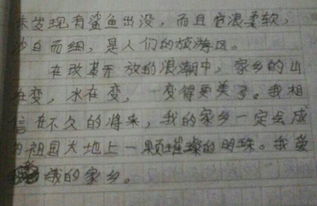 未发现有鲨鱼出没，而且海浪柔软，
沙白而细，是人们的旅游区。
在改革开放的浪潮中，家乡的山
在变，水在变，一变得更美了。我相
信在不久的将来，我的家乡一定会成
为祖国大地上一颗璀璨的明珠。我爱
我的家乡。